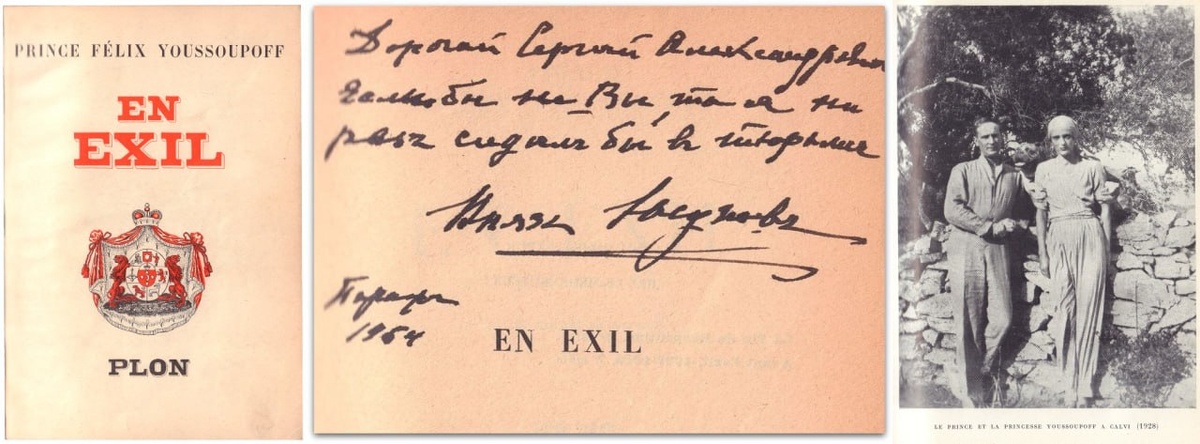 PRINCE FÉLIX YOUSSOUPOFF
EN
EXIL
PLON
Дорогой Сергей Александрович
если бы не Вы, то я не
разъ сидѣлъ бы въ тюрьмѣ
Князь Юсуповъ
Парижъ
1954
EN EXIL
LE PRINCE ET LA PRINCESSE YOUSSOUPOFF A CALVI (1928)